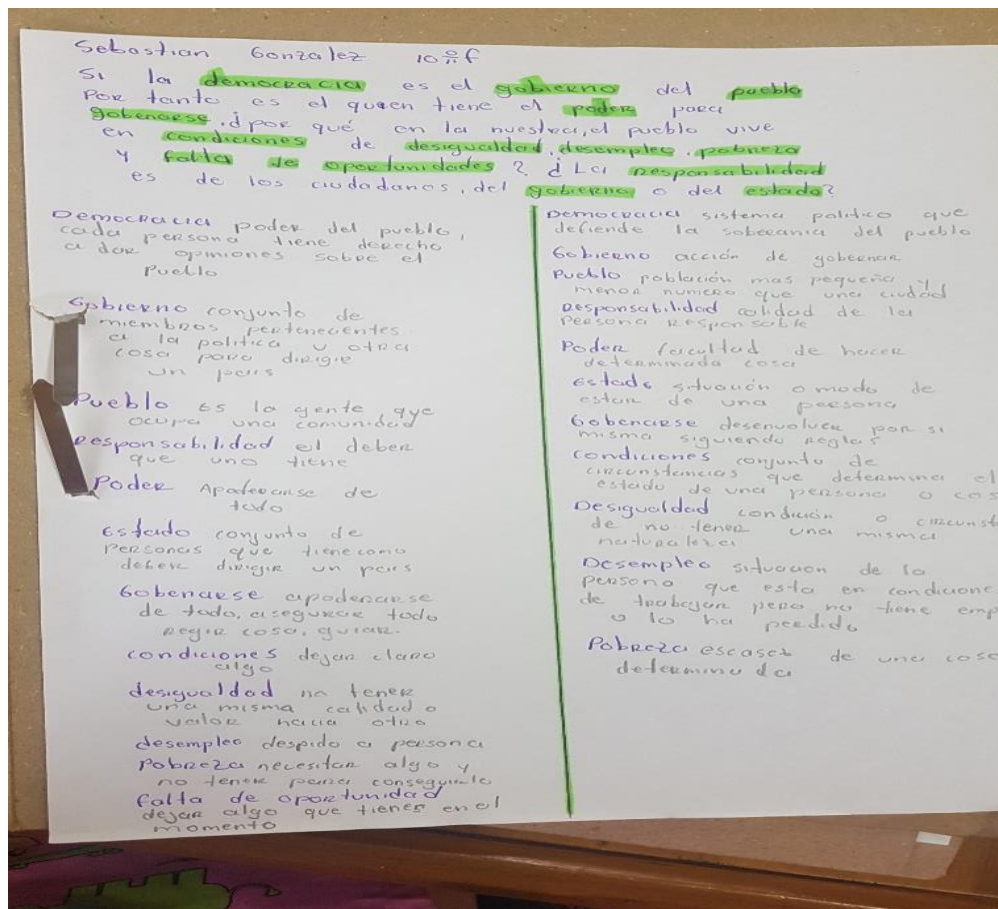 Sebastian Gonzalez 10º f
Si la democracia es el gobierno del pueblo
Por tanto es el quien tiene el poder para
gobenarse. ¿por qué en la nuestra, el pueblo vive
en condiciones de desigualdad, desempleo, pobreza
y falta de oportunidades? ¿La responsabilidad
es de los ciudadanos, del gobierno o del estado?
Democracia poder del pueblo,
cada persona tiene derecho
a dar opiniones sobre el
Pueblo
Gobierno conjunto de
miembros pertenecientes
a la politica u otra
cosa para dirigir
un pais
Pueblo es la gente, que
ocupa una comunidad
responsabilidad el deber
que uno tiene
Poder Apoderarse de
todo
estado conjunto de
Personas que tiene como
deber dirigir un pais
Gobenarse apoderarse
de todo, asegurar todo
regir cosa, guiar.
condiciones dejar claro
algo
desigualdad no tener
una misma calidad o
valor hacia otro
desempleo despido a persona
Pobreza necesitar algo y
no tener para conseguirlo
falta de oportunidad
dejar algo que tienes en el
momento
Democracia sistema politico que
defiende la soberania del pueblo
Gobierno acción de gobernar
Pueblo población mas pequeña y
menor numero que una ciudad
responsabilidad calidad de la
Persona responsable
Poder facultad de hacer
determinada cosa
estado situación o modo de
estar de una persona
Gobenarse desenvolver por si
misma siguiendo reglas
condiciones conjunto de
circunstancias que determina el
estado de una persona o cos
Desigualdad condición o circunst
de no tener una misma
naturaleza
Desempleo situacion de la
persona que esta en condicione
de trabajar pero no tiene emp
o lo ha perdido
Pobreza escasez de una cosa
determinada